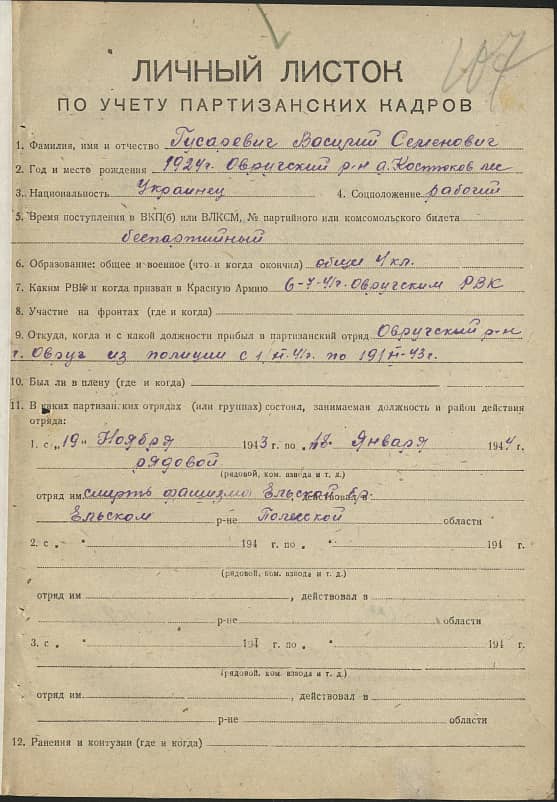 107
ЛИЧНЫЙ ЛИСТОК
ПО УЧЕТУ ПАРТИЗАНСКИХ КАДРОВ
1. Фамилия, имя и отчество Гусаревич Василий Семенович
2. Год и место рождения 1924г. Овручский р-н д. Костюков лес
3. Национальность Украинец 4. Соцположение рабочий
5. Время поступления в ВКП(б) или ВЛКСМ, № партийного или комсомольского билета
беспартийный
6. Образование: общее и военное (что и когда окончил) общее 4 кл.
7. Каким РВК и когда призван в Красную Армию 6-7-41г. Овручским РВК
8. Участие на фронтах (где и когда)
9. Откуда, когда и с какой должности прибыл в партизанский отряд Овручский р-н
г. Овруч из полиции с по
10. Был ли в плену (где и когда)
11. В каких партизан.ких отрядах (или группах) состоял, занимаемая должность и район действия
отряда:
1. с „19“ Ноября 1943 г. по Января 1944 г.
рядовой
(рядовой, ком. взвода и т. д.)
отряд им. смерть фашизму Ельской бр. действовал в
Ельском р-не Полесской области
2. с „ “ 194 г. по „ “ 194 г.
(рядовой, ком. взвода и т. д.)
отряд им. , действовал в
р-не области
3. с „ “ 194 г. по „ “ 194 г.
(рядовой, ком. взвода и т. д.)
отряд им. , действовал в
р-не области
12. Ранения и контузии (где и когда)